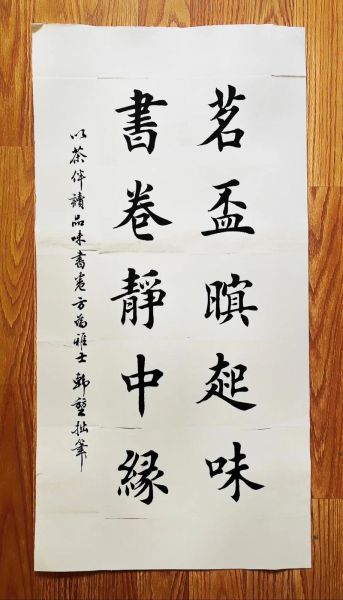 茗盃瞑起味
書卷靜中緣
以茶伴讀品味書卷方為雅士 韩拙筆